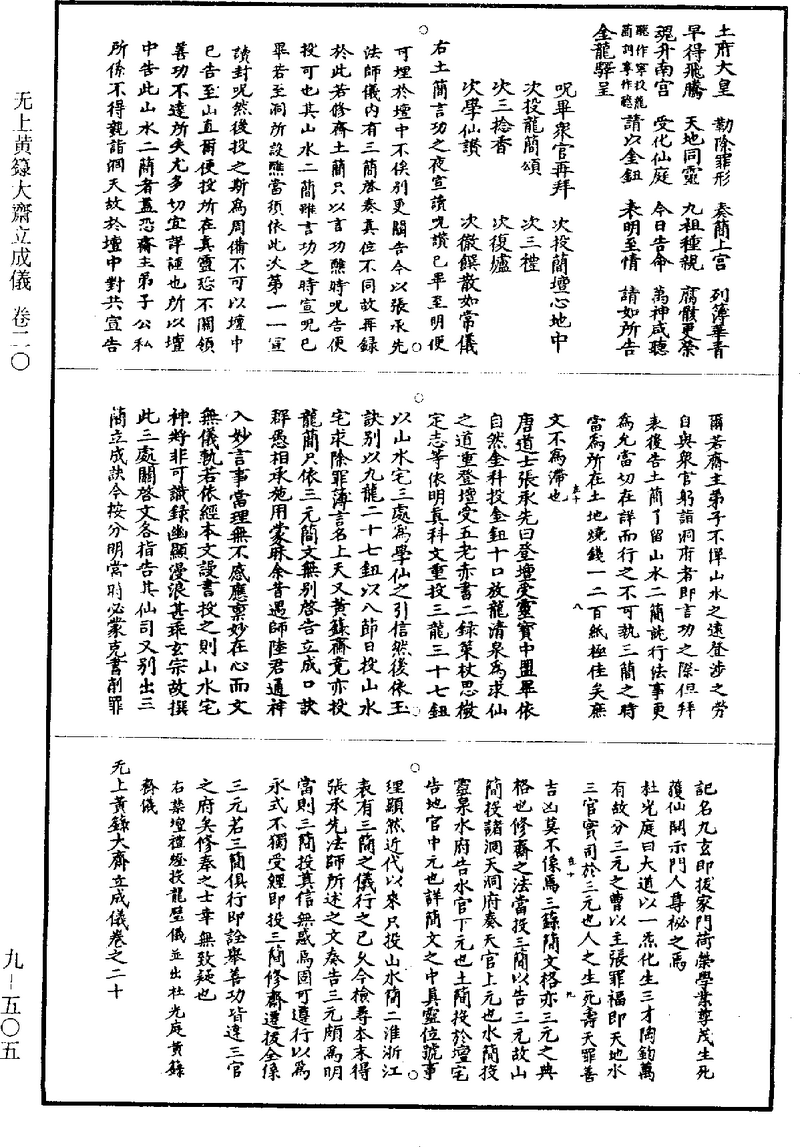 无上黃籙大齋立成儀 卷二〇
九-五〇五
土府大皇 勒除罪形 奏簡上宮 列簿華青
早得飛騰 天地同靈 九祖種親 腐骸更榮
魂升南宮 受化仙庭 今日告命 萬神咸聽
請以金鈕 表明至情 請如所告
金龍驛呈
呪畢眾官再拜 次投簡壇心地中
次投龍簡頌 次三禮
次三捻香 次復爐
次學仙讚 次徹饌散如常儀
右土簡言功之夜宣讀呪讚已畢至明便
可埋於壇中不俟別更關告今以張承先
法師儀內有三簡啓奏真位不同故再錄
於此若修齋土簡只以言功醮時呪告便
投可也其山水二簡雖言功之時宣呪已
畢若至洞所設醮當須依此次第一一宣
讀封呪然後投之斯為周備不可以壇中
已告至山直爾便投所在真靈恐不關領
善功不達所失尤多切宜詳謹也所以壇
中告此山水二簡者蓋恐齋主弟子公私
所係不得親詣洞天故於壇中對共宣告
爾若齋主弟子不憚山水之遠登涉之勞
自與眾官躬詣洞府者即言功之際但拜
表後告土簡了留山水二簡詫行法事更
為允當切在詳而行之不可執三簡之時
當為所在土地燒錢一二百紙極佳矣應
文不為滯也
唐道士張承先曰登壇受靈寶中盟畢依
自然金科投金鈕十口放龍清泉為求仙
之道重登壇受五老赤書二錄策杖思微
定志等依明真科文重投三龍三十七鈕
以山水宅三處為學仙之引信然後依玉
訣別以九龍二十七鈕以八節日投山水
宅求除罪簿言名上天又黃籙齋竟亦投
龍簡只依三元簡文無別啓告立成口訣
群愚相承施用蒙昧余昔遇師陸君通神
入妙言事當理無不感應稟妙在心而文
無儀執若依經本文謾書投之則山水宅
神將非可識錄幽顯漫浪甚乖玄宗故撰
此三處關啓文各指告其仙司又別出三
簡立成訣今按分明當時必蒙克書削罪
記名九玄即拔家門荷榮學業尊茂生死
護仙開示門人尊祕之焉
杜光庭曰大道以一炁化生三才陶鈞萬
有故分三元之曹以主張罪福即天地水
三官實司於三元也人之生死壽夭罪善
吉凶莫不係焉三籙簡文格亦三元之典
格也修齋之法當投三簡以告三元故山
簡投諸洞天洞府奏天官上元也水簡投
靈泉水府告水官下元也土簡投於壇宅
告地官中元也詳簡文之中真靈位號事
理顯然近代以來只投山水簡二淮浙江
表有三簡之儀行之已久今檢尋本末得
張承先法師所述之文奏告三元頗為明
當則三簡投真信無惑焉固可遵行以為
永式不獨受經即投三簡修齋遷拔全係
三元若三簡俱行即詮舉善功皆達三官
之府矣修奉之士幸無致疑也
右禁壇禮經投龍壁儀並出杜光庭黃籙
齋儀
无上黃籙大齋立成儀卷之二十